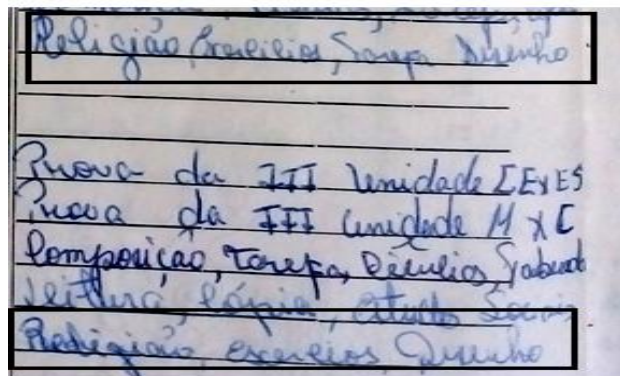 Religião, Exercícios, Tarefa Desenho
Prova da III Unidade CEXES
Prova da III Unidade M X C
Composição, Tarefa, Exercícios,
Leitura, Cópia, Estudos Sociais
Religião, exercícios, Desenho